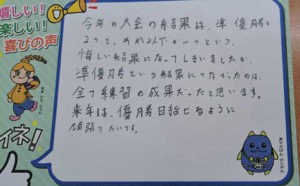 嬉しい!
楽しい!
喜びの声
今年の大会の結果は、準優勝が
2つと、あれ以下が一つという、
悔しい結果になってしまいましたが、
準優勝という結果につながったのは、
全て練習の成果だったと思います。
来年は、優勝目指せるように
頑張りたいです。
イネ!